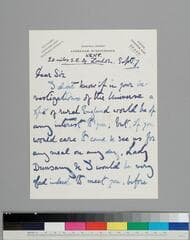 KENT.
20 miles S.E. of London. Sept. 7
Dear Sir
I don't know if in your in-
vestigations of the Universe a
of rural England would be of
any interest to you; but if you
would care to come to see us for
any meal on any day, Lady
Dunsany & I would be very
glad indeed to meet you, before